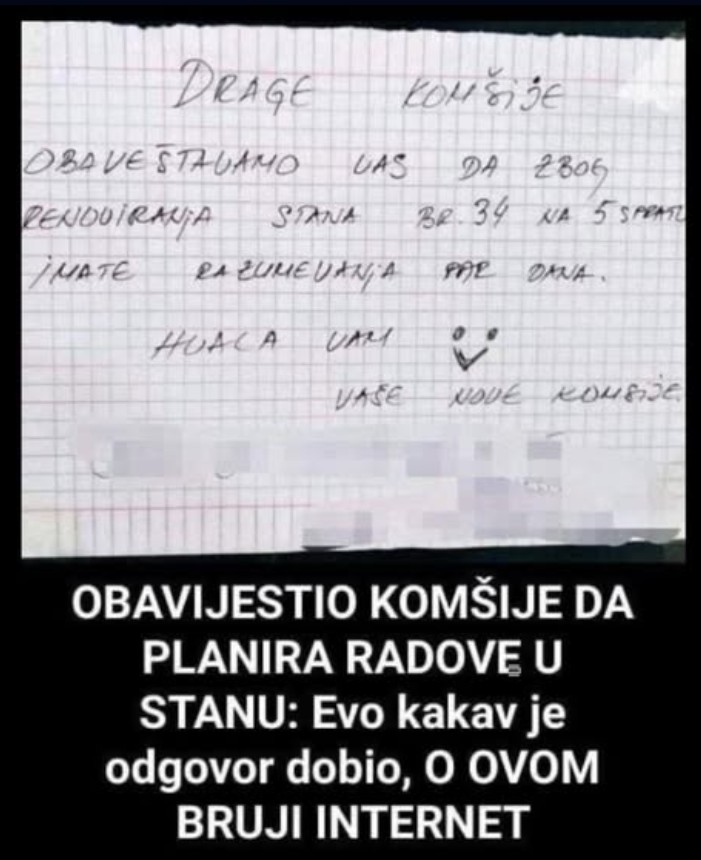 DRAGE KOMŠIJE
OBAVEŠTAVAMO VAS DA ZBOG
RENOVIRANJA STANA BR. 34 NA 5 SPRATU
IMATE RAZUMEVANJA PAR DANA.
HVALA VAM
VAŠE NOVE KOMŠIJE.
OBAVIJESTIO KOMŠIJE DA
PLANIRA RADOVE U
STANU: Evo kakav je
odgovor dobio, O OVOM
BRUJI INTERNET